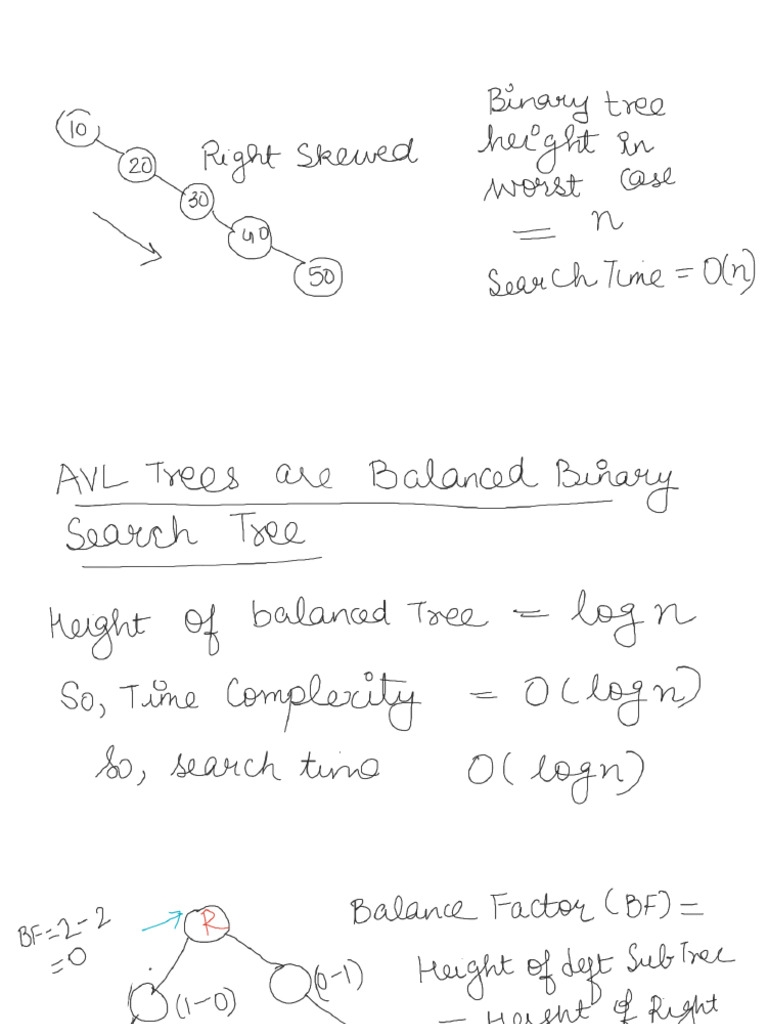 10
20
30
40
50
Right Skewed
Binary tree
height in
worst case
= n
Search Time = O(n)
AVL Trees are Balanced Binary
Search Tree
Height of balanced Tree = log n
So, Time Complexity = O(log n)
So, search time O(log n)
BF=2-2
=0
R
(1-0)
(0-1)
Balance Factor (BF) =
Height of left SubTree
- Height of Right